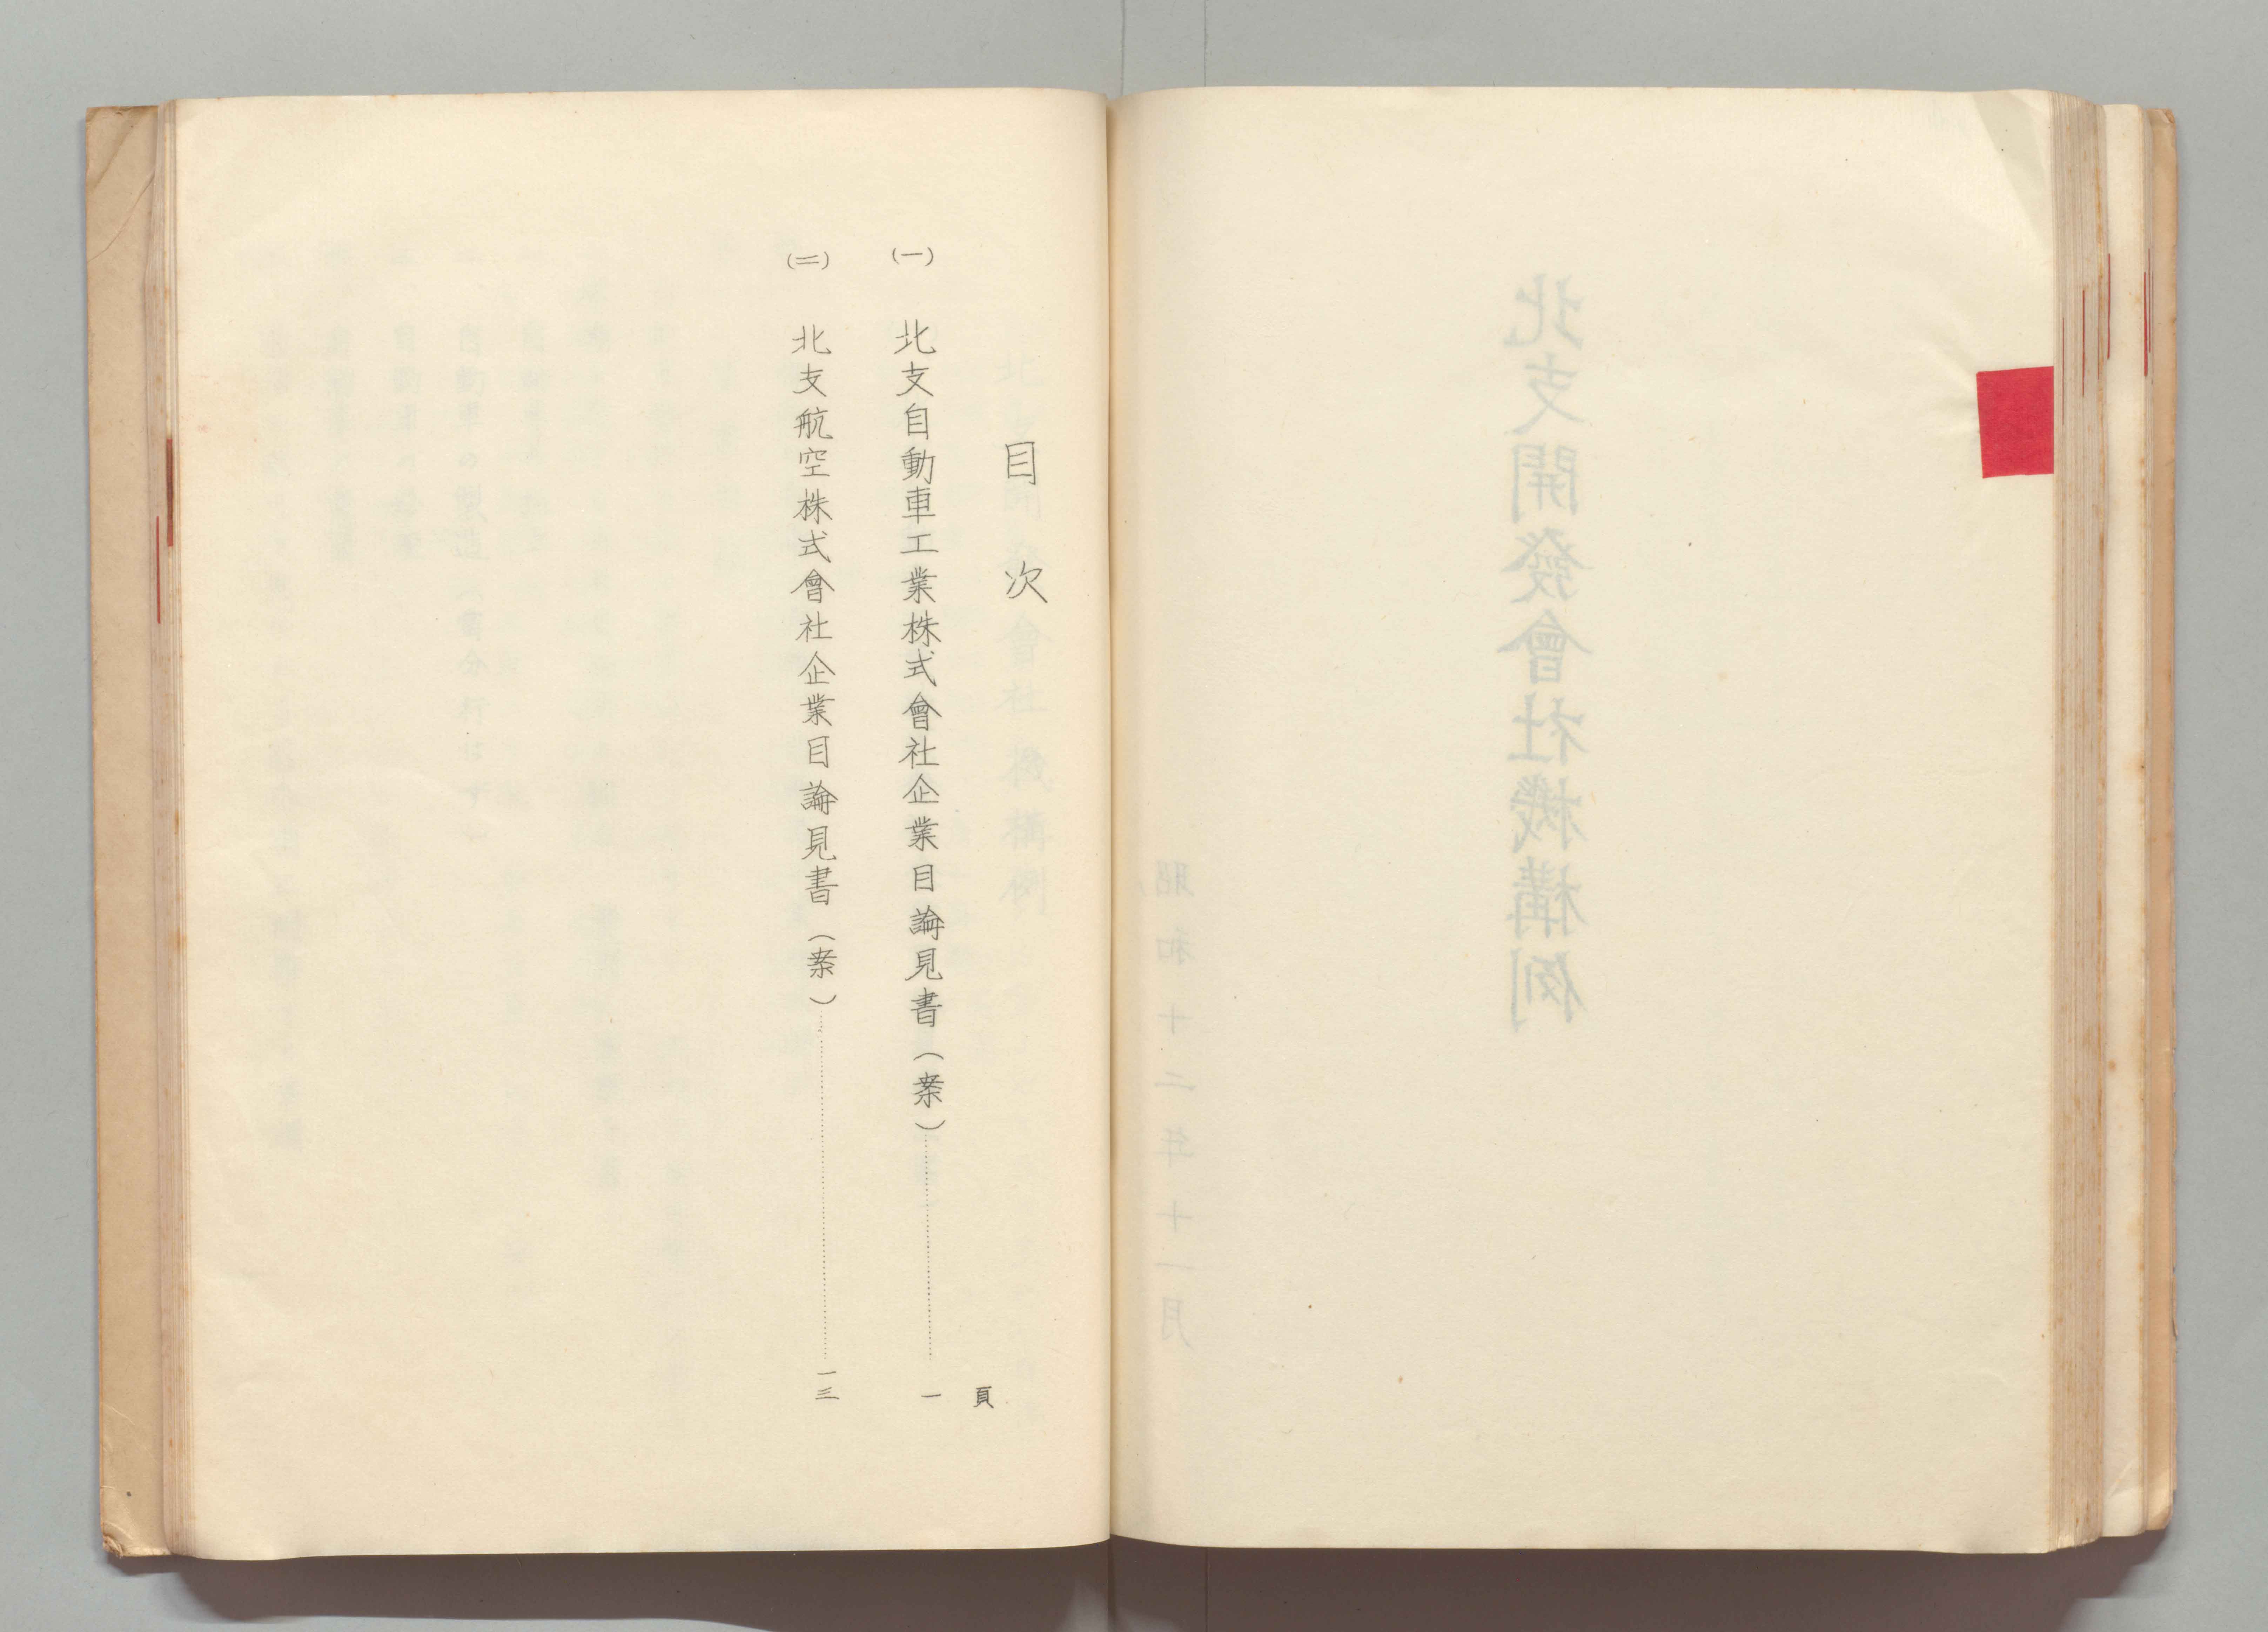 北支開發會社機構例
昭和十二年十一月
目次
頁
(一) 北支自動車工業株式會社企業目論見書(案)……一
(二) 北支航空株式會社企業目論見書(案)……一三